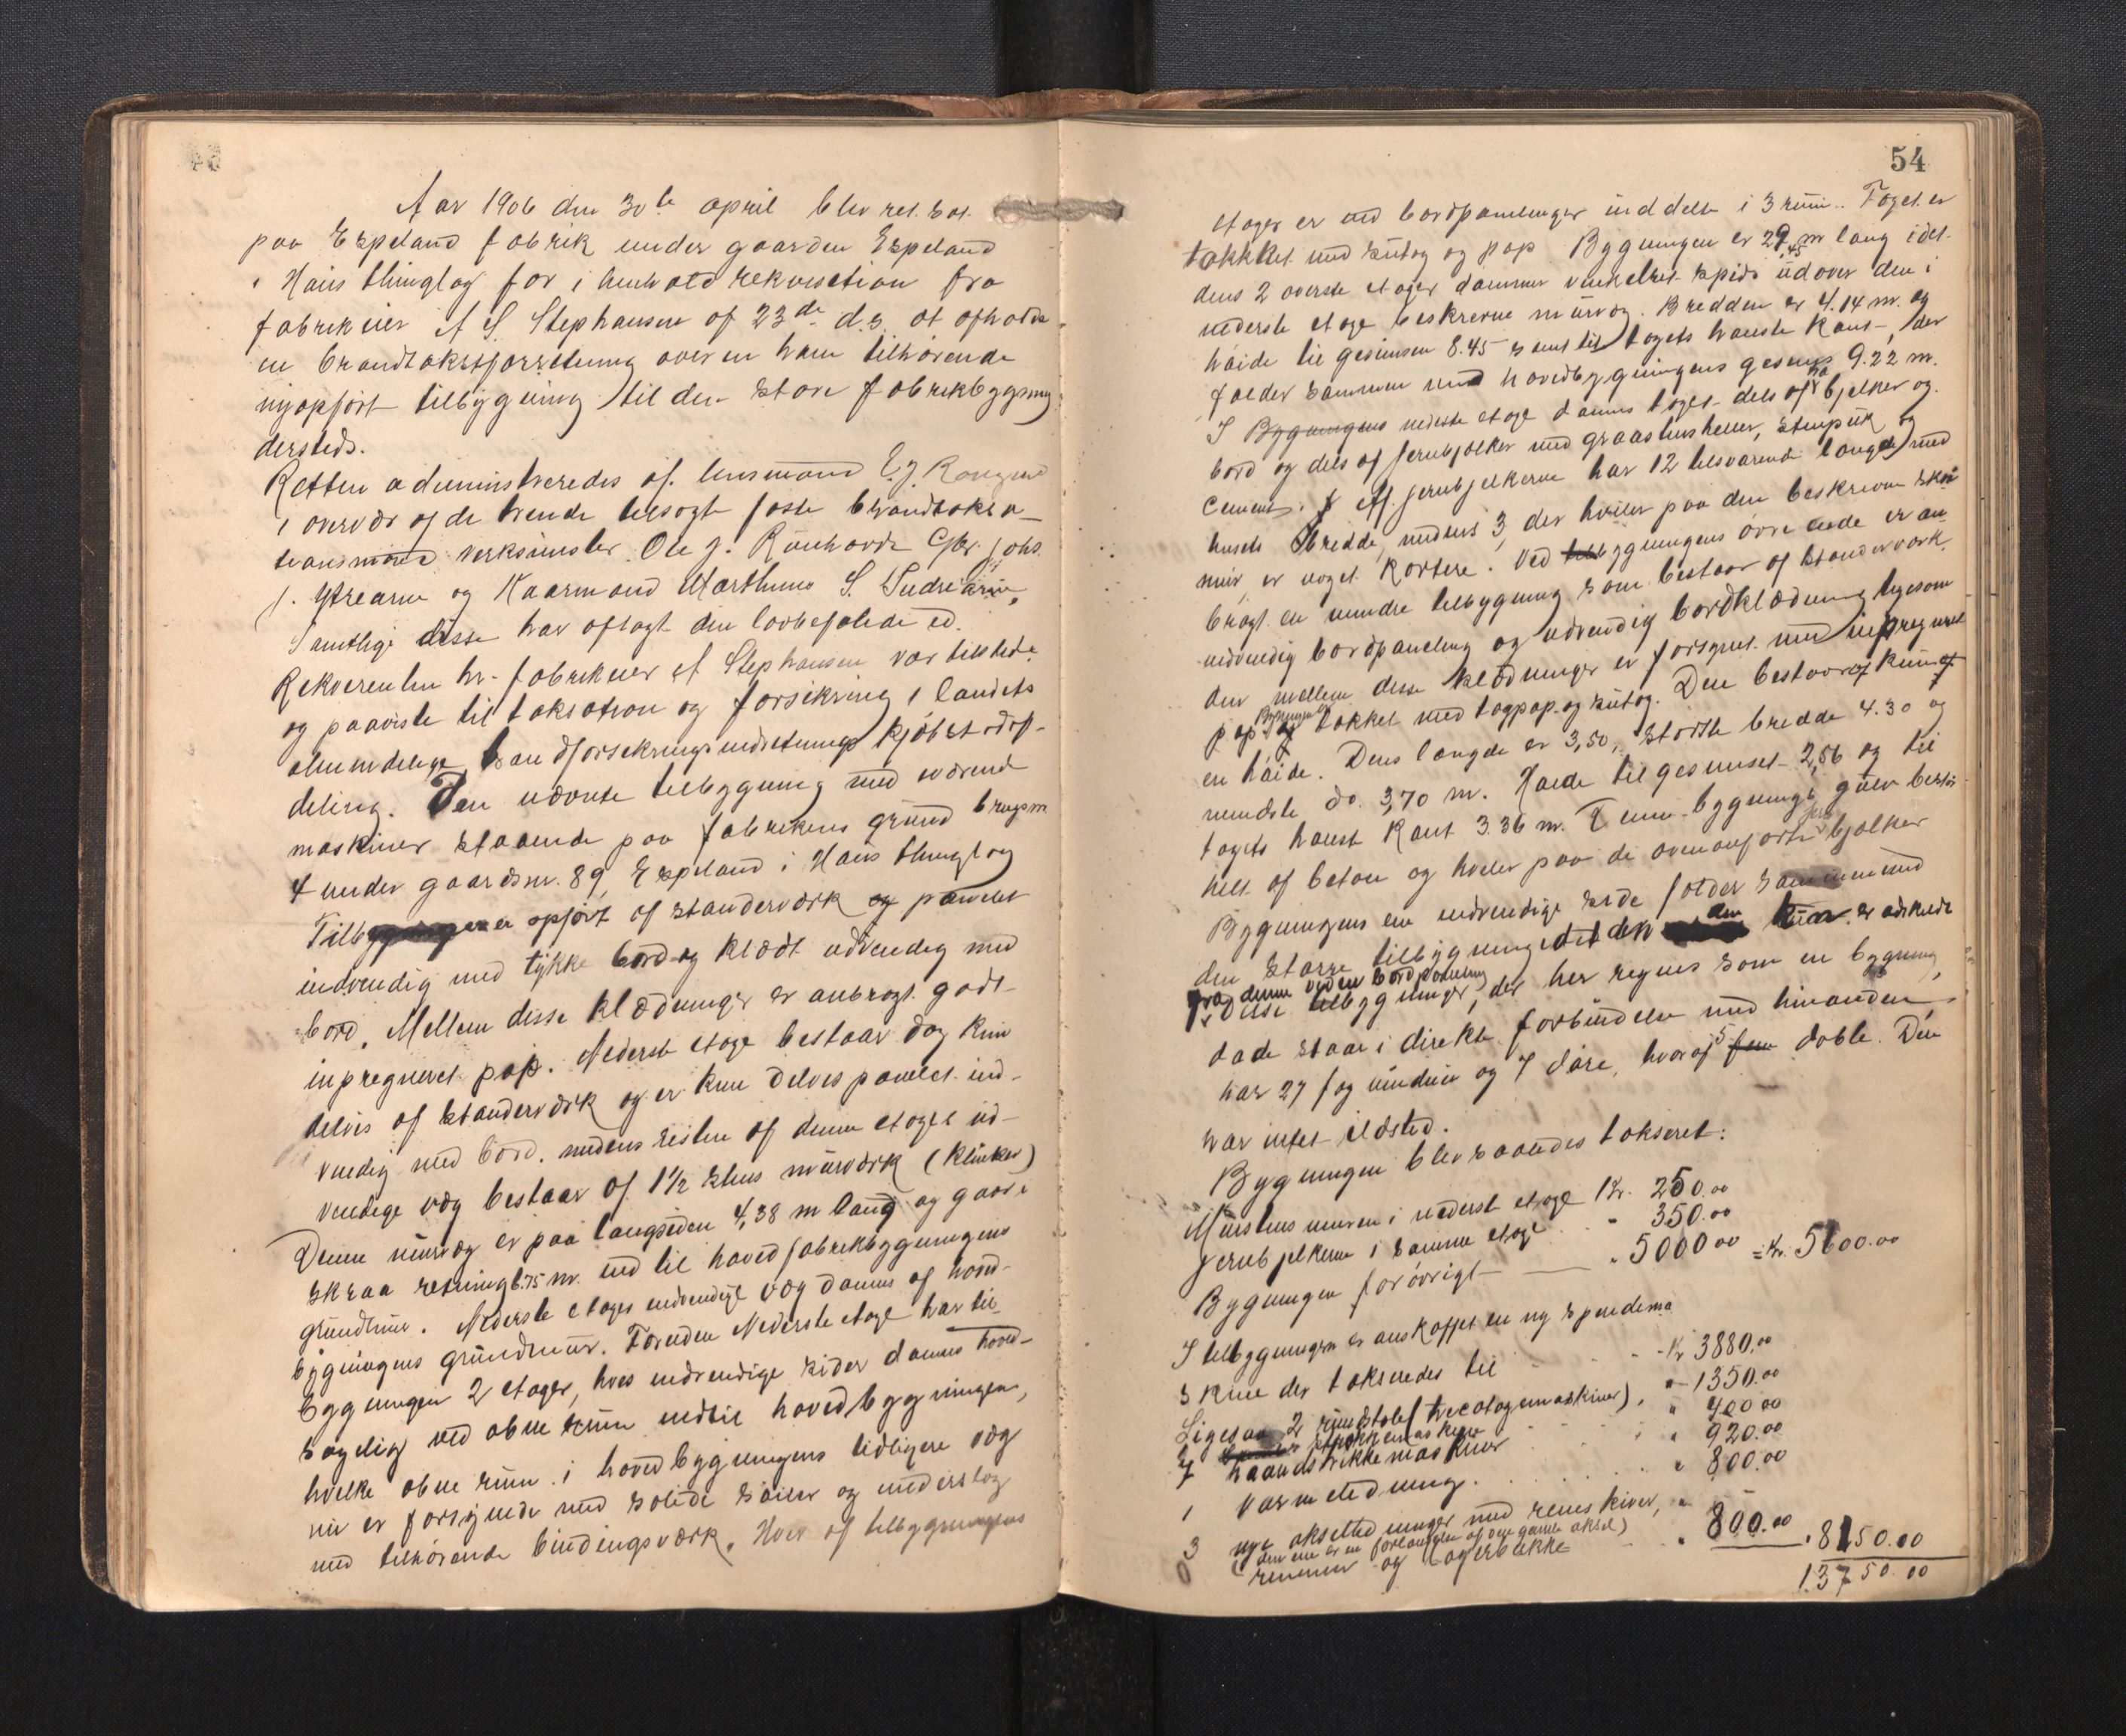 Aar 1906 den 30te april blev ret sat
paa Espeland fabrik under gaarden Espeland
i Haus thinglag for i henhold rekvisition fra
fabrikeier A S Stephansen af 23de d.s. at afholde
en brandtakstforretning over en ham tilhørende
nyopført tilbygning til den store fabrikbygning
dersteds.
Retten administreredes af lensmand
i overvær af de trende besogte faste brandtaksa-
tionsmænd verksmester Ole J. Rønhovde Gbr. Johs.
J. Ytrearne og Kaarmand Marthinus S. Indrearne,
Samtlige disse har aflagt den lovbefalede ed.
Rekverenten hr. fabrikeier A Stephansen var tilstede
og paaviste til taksation og forsikring i landets
almindelige brandforsikringsindretnings kjøbstadaf-
deling. Den nævnte tilbygning med værende
maskiner staaende paa fabrikens grund brugsn.
4 under gaardsnr. 89, Espeland i Haus thinglag
Tilbygningen er opført af standerværk og panelet
indvendig med tykke bord og klædt udvendig med
bord. Mellem disse klædninger er anbragt godt
inpregneret pap. Nederste etage bestaar dog kun
delvis af standerværk og er kun delvis panelet ind-
vendig med bord, medens resten af denne etages ud-
vendige væg bestaar af 1½ stens murværk (klinker)
Denne murvæg er paa langsiden 4,38 m lang og gaar i
skraa retning 6.75 m. ind til hovedfabrikbygningens
grundmur. Nederste etages indvendige væg dannes af hoved-
bygningens grundmur. Foruden Nederste etage har til-
bygningen 2 etager, hvis indvendige sider dannes hoved-
sagelig ved abne rum indtil hovedbygningen,
hvilke abne rum i hovedbygningens tidligere væg
nu er forsynede med solide søiler og underslag
med tilhørende bindingsværk. Hver af tilbygningens
54
etager er ved bordpanelinger inddelt i 3 rum. Taget er
takket med sutag og pap. Bygningen er 29,45 m lang idet
dens 2 øverste etager danner vinkelret spids udover den i
nederste etage beskrevne murvæg. Bredden er 4.14 m. og
høide til gesimsen 8.45 samt til tagets høieste kant, der
falder sammen med hovedbygningens gesims 9.22 m.
I Bygningens nederste etage dannes taget dels af træbjelker og
bord og dels af jernbjelker med graastensheller, stenpuk og
cement. Af jernbjelkerne har 12 tilsvarende længde med
husets bredde, medens 3, der hviler paa den beskrevne skraa
mur, er noget kortere. Ved bygningens øvre ende er an-
bragt en mindre tilbygning som bestaar af standerværk,
indvendig bordpaneling og udvendig bordklædning ligesom
der mellem disse klædninger er forsynet med inpregneret
pap. Bygningen er takket med tagpap og sutag. Den bestaar af kun af
en høide. Dens længde er 3,50, største bredde 4.30 og
mindste do. 3,70 m. Høide til gesimset 2,56 og til
tagets høiest kant 3.36 m. Denne bygnings gulv bestaar
helt af beton og hviler paa de ovenanførte jernbjelker
Bygningens ene indvendige side falder sammen med
den større tilbygning idet den kun er adskildt
fra denne ved en bordpaneling
Disse tilbygninger, der her regnes som en bygning,
dade staar i direkte forbindelse med hinanden,
har 27 fag vinduer og 7 døre, hvoraf 5 fem doble. Den
har intet ildsted.
Bygningen blev saaledes takseret:
Murstens muren i nederst etage Kr. 250.00
Jernbjelkerne i samme etage " 350.00
Bygningen forøvrigt " 5000 00 = Kr. 5600.00
I tilbygningen er anskaffet en ny spindema
skine der takseredes til Kr 3880.00
Ligesaa 2 rundstole (tricotagemaskiner) " 1350.00
7 haandstrikkemaskiner " 400 00
1 Varmeledning. " 920.00
3 nye akselledninger med remskiver, " 800.00
(den ene er en forlængelse af den gamle aksel)
remmer og lagerbukke " 800.00 " 8150.00
13750.00